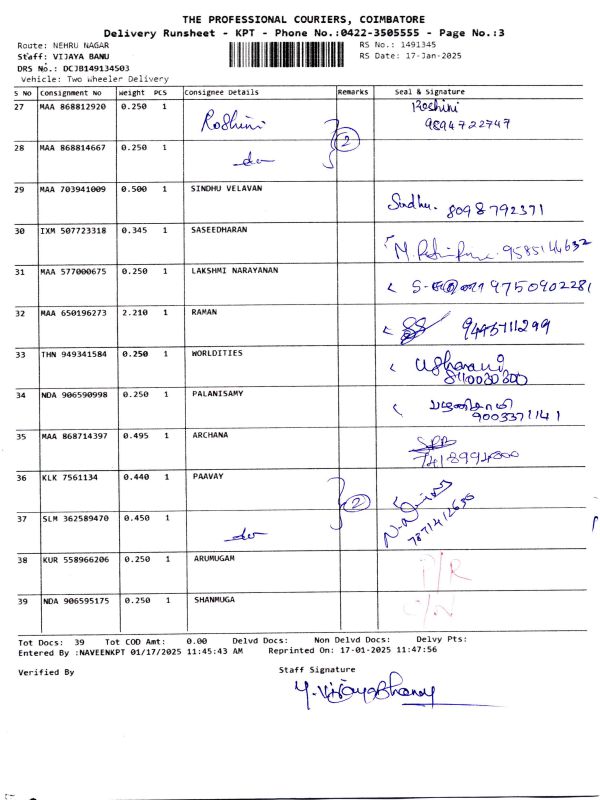 THE PROFESSIONAL COURIERS, COIMBATORE
Delivery Runsheet - KPT - Phone No.:0422-3505555 - Page No.:3
Route: NEHRU NAGAR RS No.: 1491345
Staff: VIJAYA BANU RS Date: 17-Jan-2025
DRS No.: DCJB149134503
Vehicle: Two Wheeler Delivery
S No Consignment No Weight PCS Consignee Details Remarks Seal & Signature
27 MAA 868812920 0.250 1 Roshini Roshini
9894722747
2
28 MAA 868814667 0.250 1 do
29 MAA 703941009 0.500 1 SINDHU VELAVAN Sindhu. 8098792371
30 IXM 507723318 0.345 1 SASEEDHARAN 9585144632
31 MAA 577000675 0.250 1 LAKSHMI NARAYANAN 9750902281
32 MAA 650196273 2.210 1 RAMAN
33 THN 949341584 0.250 1 WORLDITIES
34 NDA 906590998 0.250 1 PALANISAMY பழனிசாமி
9003371141
35 MAA 868714397 0.495 1 ARCHANA
36 KLK 7561134 0.440 1 PAAVAY
2
37 SLM 362589470 0.450 1 do 7871412650
38 KUR 558966206 0.250 1 ARUMUGAM
39 NDA 906595175 0.250 1 SHANMUGA
Tot Docs: 39 Tot COD Amt: 0.00 Delvd Docs: Non Delvd Docs: Delvy Pts:
Entered By :NAVEENKPT 01/17/2025 11:45:43 AM Reprinted On: 17-01-2025 11:47:56
Verified By Staff Signature
Y. Vijayabhanu